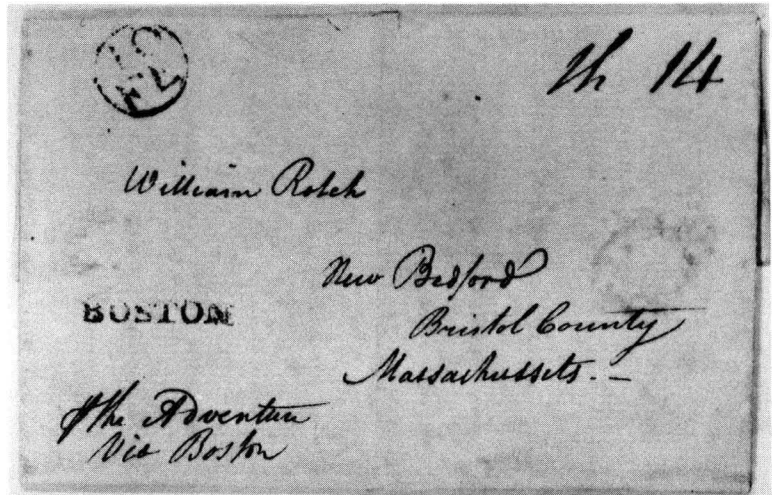 sh 14
William Rotch
New Bedford
BOSTON
Bristol County
Massachussets. –
the Adventure
Via Boston